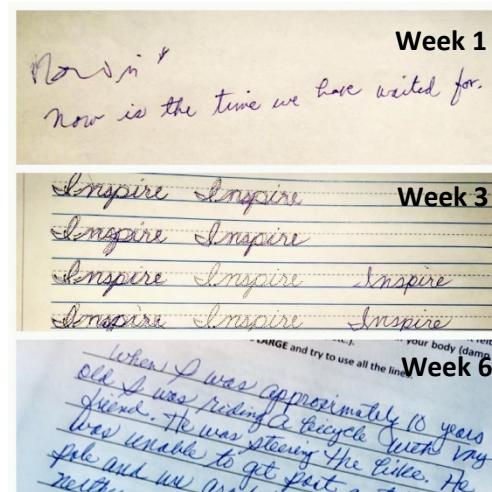 Week 1
Now is
Now is the time we have waited for.
Inspire Inspire Week 3
Inspire Inspire
Inspire Inspire Inspire
Inspire Inspire Inspire
your body (damp
LARGE and try to use all the lines
Week 6
When I was approximately 10 years
old I was riding a bicycle with my
friend. He was steering the bike. He
was unable to get past
pole and we